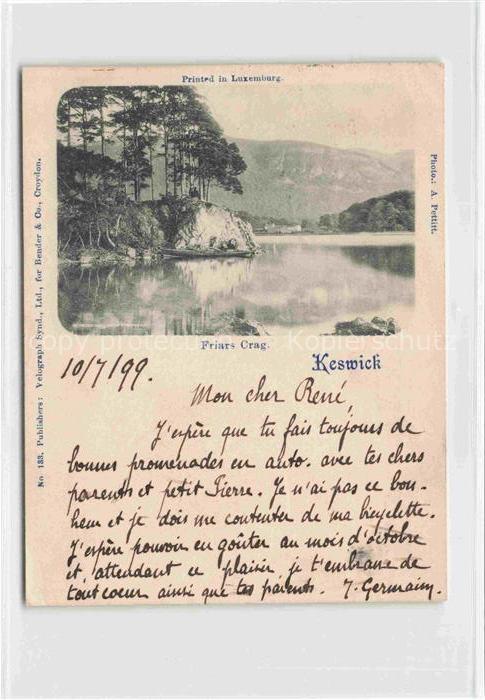 Printed in Luxemburg.
No 133. Publishers: Velograph Synd., Ltd., for Bender & Co., Croydon.
Photo.: A. Pettitt.
copy protection · Kopierschutz
Friars Crag.
Keswick
10/7/99.
Mon cher René,
J'espère que tu fais toujours de
bonnes promenades en auto. avec tes chers
parents et petit Pierre. Je n'ai pas ce bon-
heur et je dois me contenter de ma bicyclette.
J'espère pouvoir en goûter au mois d'octobre
et, attendant ce plaisir, je t'embrasse de
tout coeur ainsi que tes parents. J. Germainy.